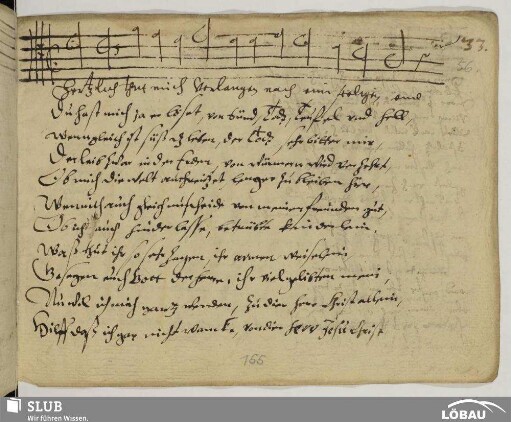 Hertzlich thut mich Verlangen nach eim seligen end
Du hast mich ja er löset, von sünd, Todt, teuffel vnd hell,
Wenn gleich ist süß das leben, der Todt sehr bitter mir,
Der leib zwar in der Erden, von würmen wird verzehrt,
Ob mich die welt auch reitzet lenger zu bleiben hier,
Wenn ich auch gleich nu scheide von meinen freunden gut,
Ob ich auch hinderlasse, betrübte kinderlein,
Waß thut ihr so sehr zagen, ihr armen weiselein
Gesegen euch Gott der herre, ihr vielgeliebten mein,
Nu wil ich mich gantz wenden, zu dir herr Christ allein,
Hilff daß ich gar nicht wancke, von dir herr Jesu Christ
166
SLUB
Wir führen Wissen.
LÖBAU